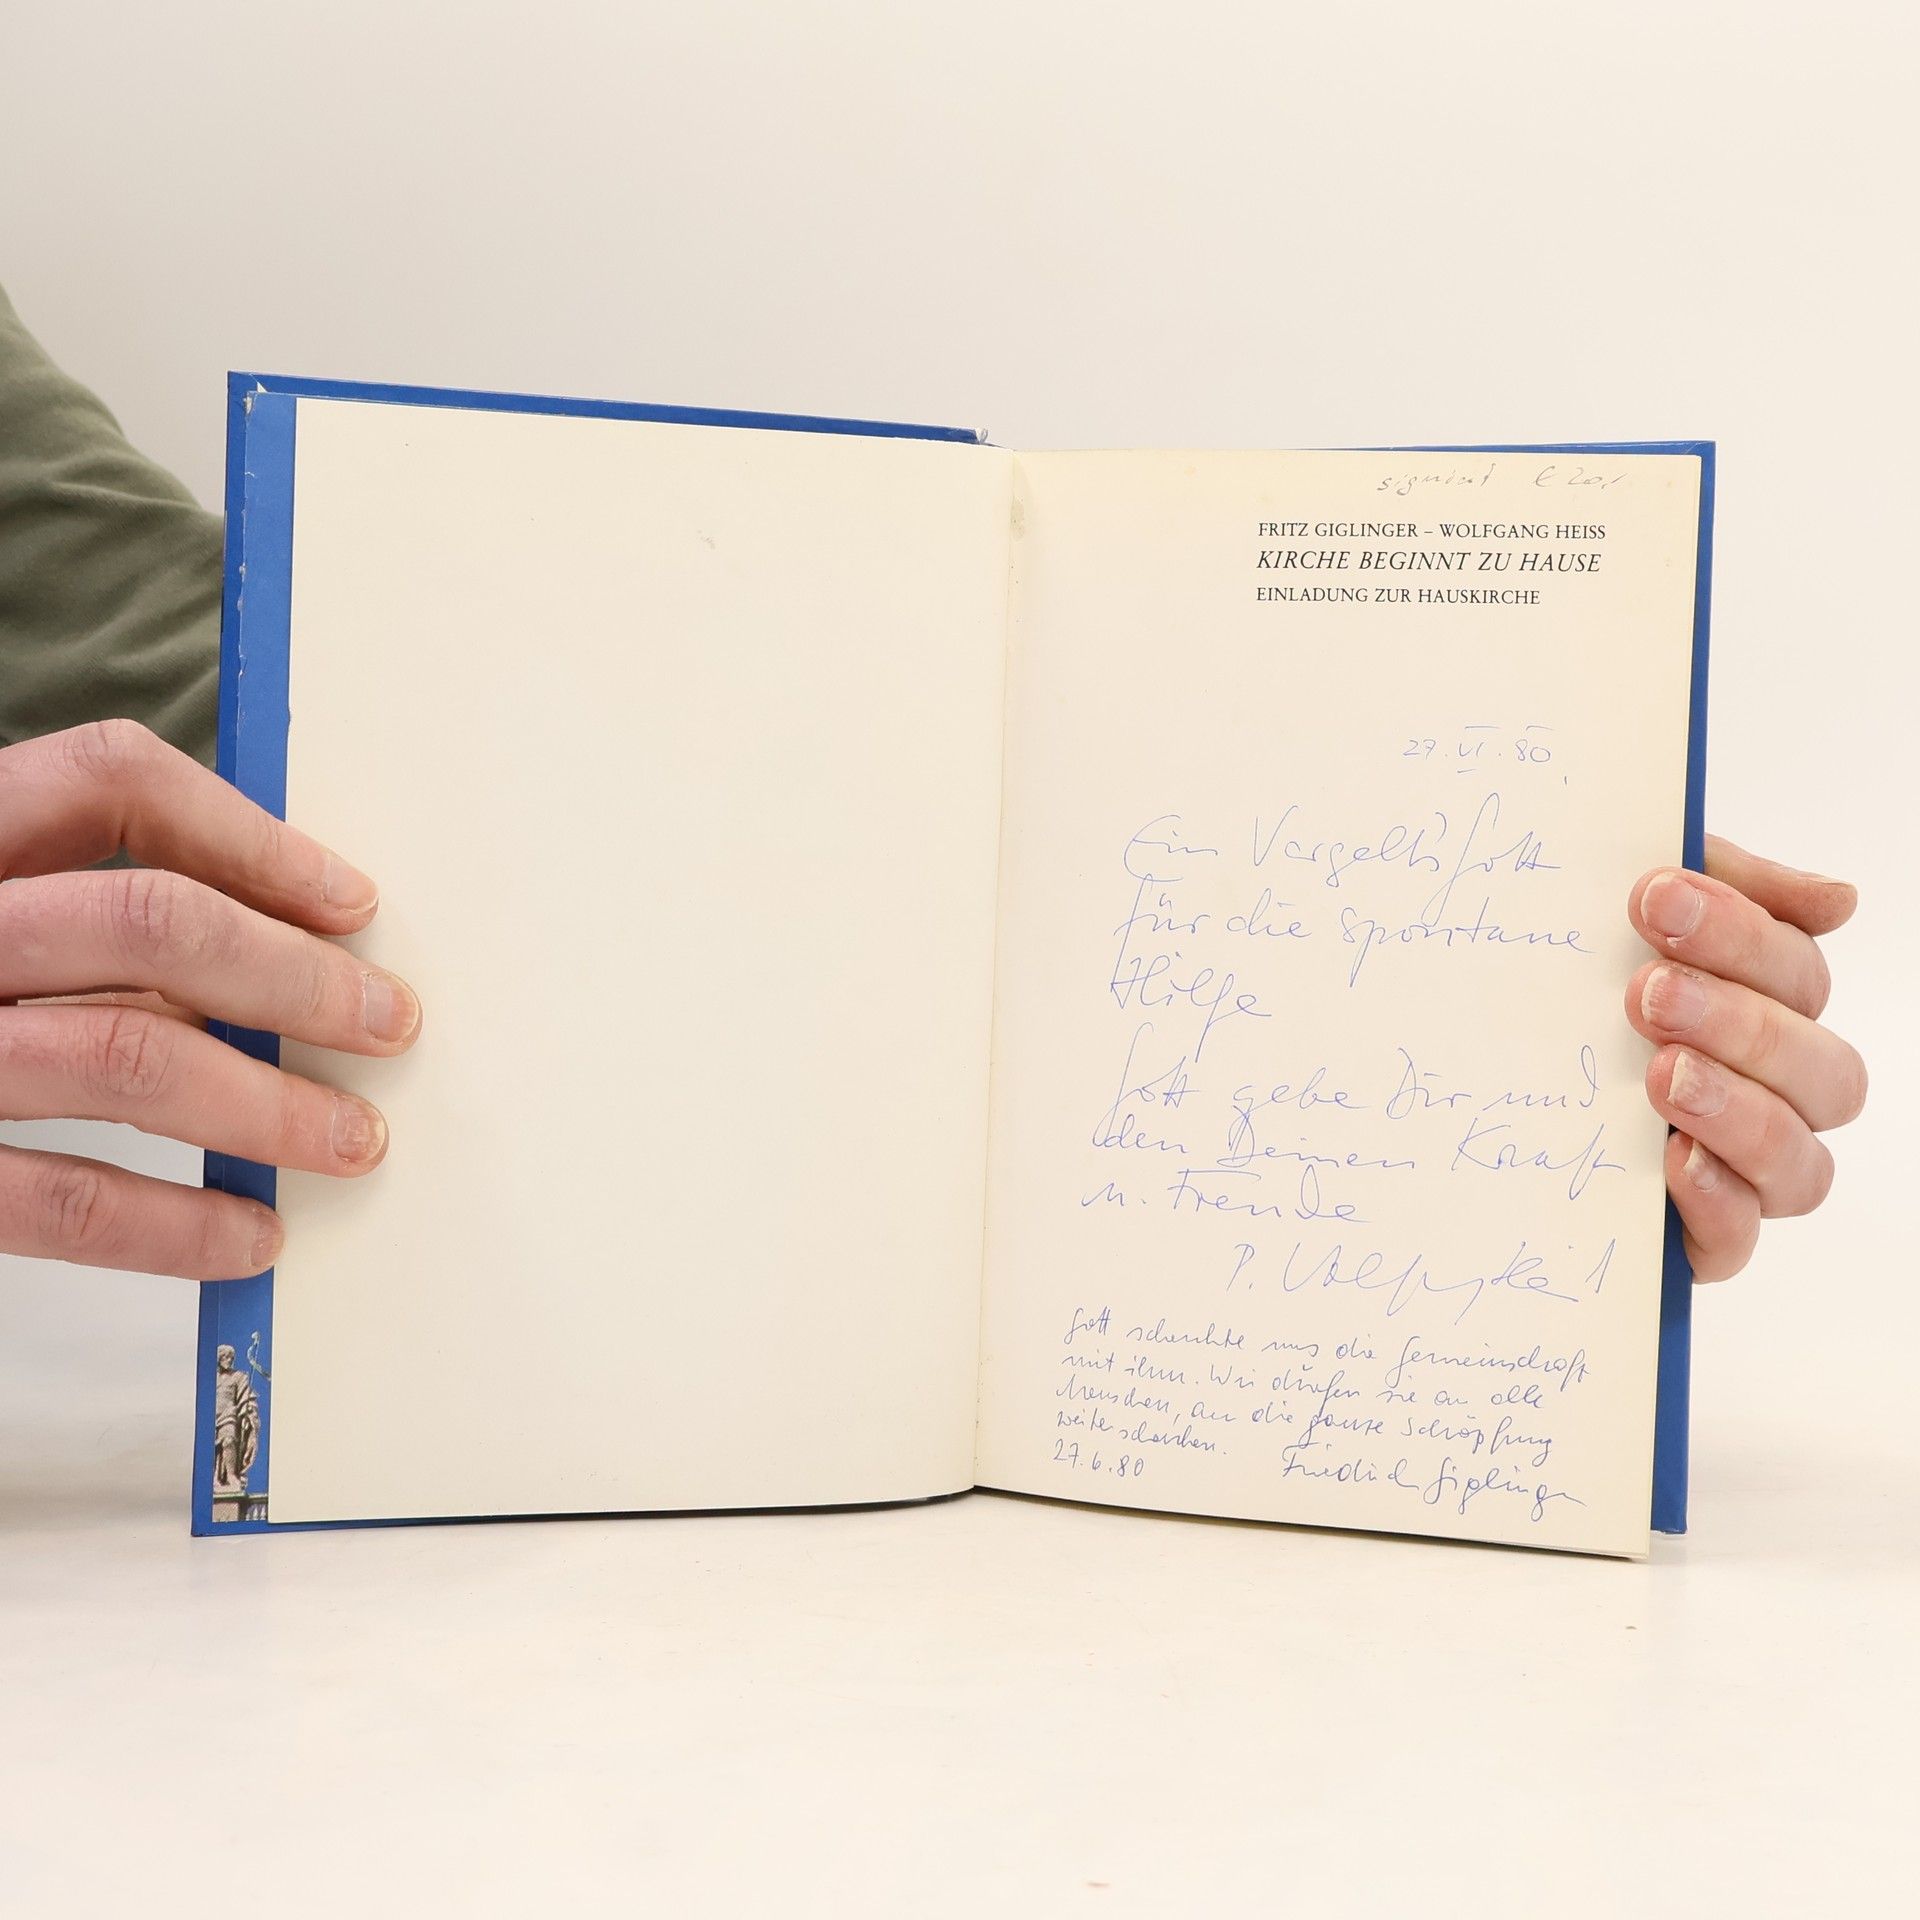 signiert € 20,-
FRITZ GIGLINGER – WOLFGANG HEISS
KIRCHE BEGINNT ZU HAUSE
EINLADUNG ZUR HAUSKIRCHE
27. VI. 80
Ein Vergelt's Gott
für die spontane
Hilfe
Gott gebe Dir und
den Deinen Kraft
u. Freude
P.
Gott schenkte uns die Gemeinschaft
mit ihm. Wir dürfen sie an alle
Menschen, an die ganze Schöpfung
weiterschenken.
27.6.80 Friedrich Giglinger